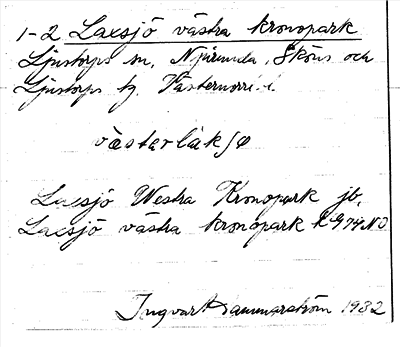 1-2 Laxsjö västra kronopark
Ljustorps sn, Njurunda, Sköns och
Ljustorps tg. Västernorrl. l.
västerlákʃø
Laxsjö Westra Kronopark jb.
Laxsjö västra kronopark K G 74 NO
Ingvar Hammarström 1932